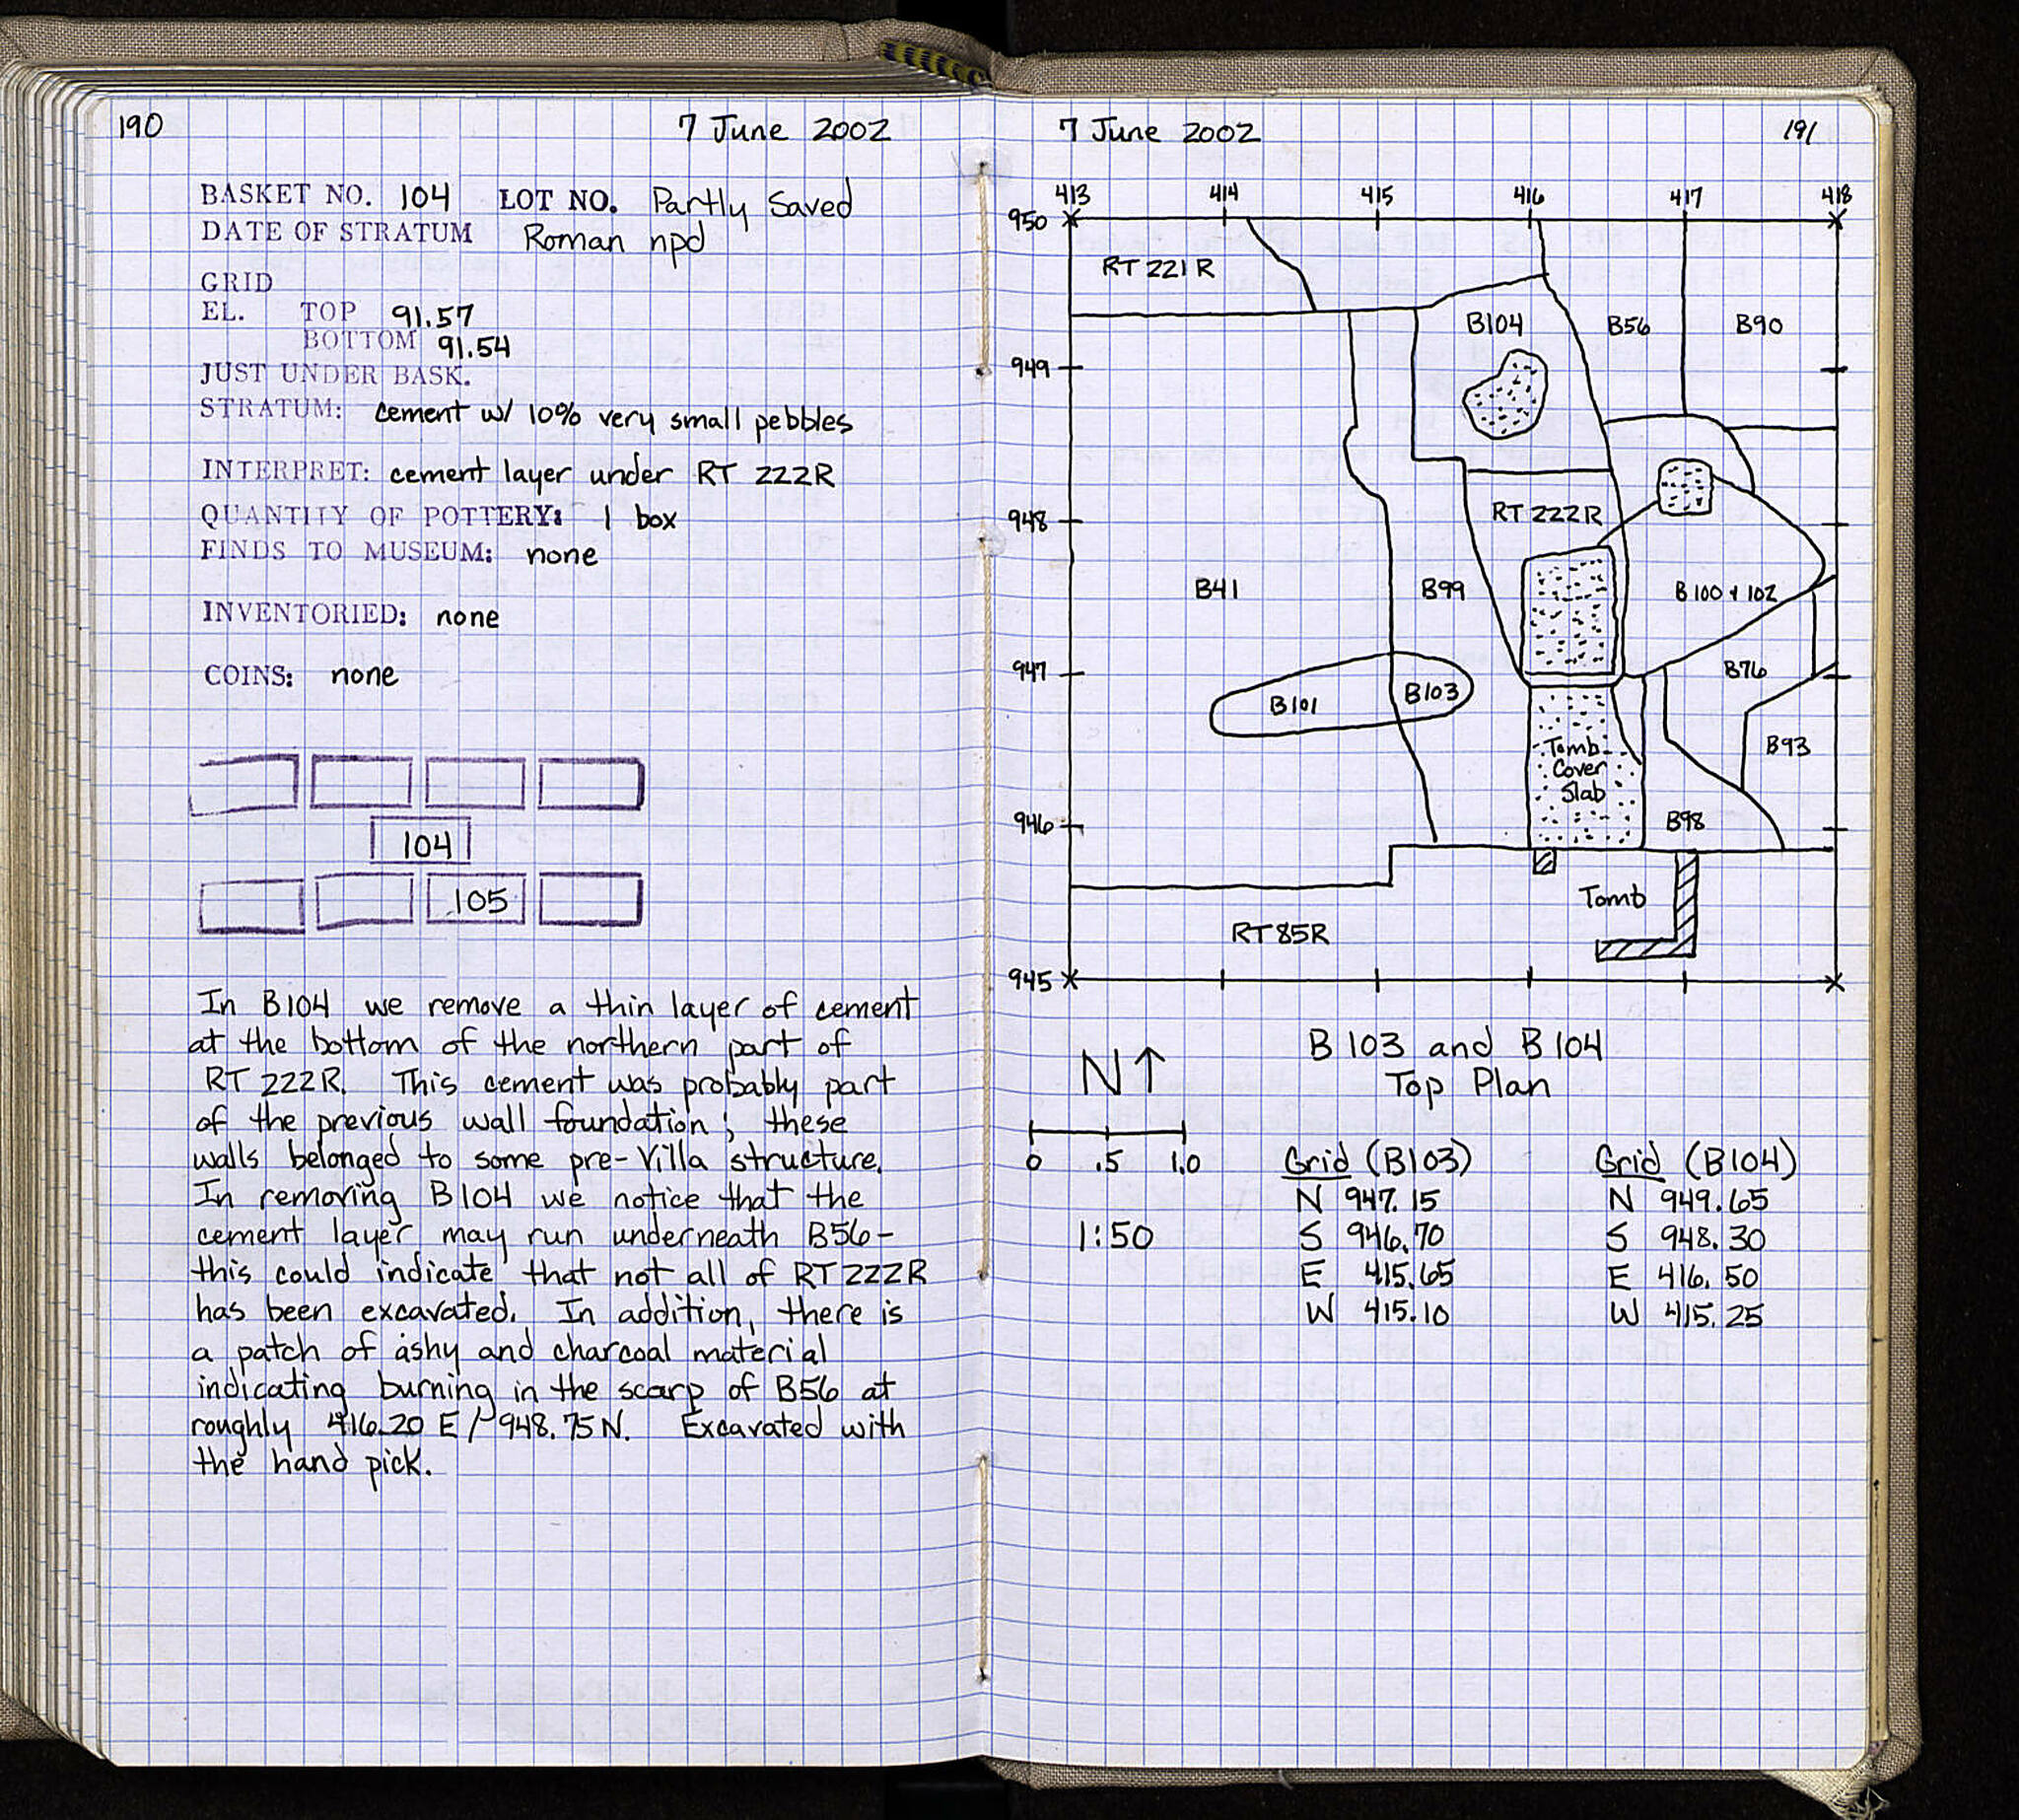 190
7 June 2002
BASKET NO. 104 LOT NO. Partly Saved
DATE OF STRATUM Roman npd
GRID
EL. TOP 91.57
BOTTOM 91.54
JUST UNDER BASK.
STRATUM: cement w/ 10% very small pebbles
INTERPRET: cement layer under RT 222R
QUANTITY OF POTTERY: 1 box
FINDS TO MUSEUM: none
INVENTORIED: none
COINS: none
104
105
In B104 we remove a thin layer of cement
at the bottom of the northern part of
RT 222R. This cement was probably part
of the previous wall foundation; these
walls belonged to some pre-Villa structure.
In removing B104 we notice that the
cement layer may run underneath B56-
this could indicate that not all of RT 222R
has been excavated. In addition, there is
a patch of ashy and charcoal material
indicating burning in the scarp of B56 at
roughly 416.20 E / 948.75 N. Excavated with
the hand pick.
7 June 2002
191
413 414 415 416 417 418
950
RT 221R
B104
B56
B90
949
948
RT 222R
B41
B99
B100 + 102
947
B76
B101
B103
B93
Tomb
Cover
Slab
946
B98
Tomb
RT 85R
945
N↑
B103 and B104
Top Plan
0 .5 1.0
1:50
Grid (B103)
N 947.15
S 946.70
E 415.65
W 415.10
Grid (B104)
N 949.65
S 948.30
E 416.50
W 415.25